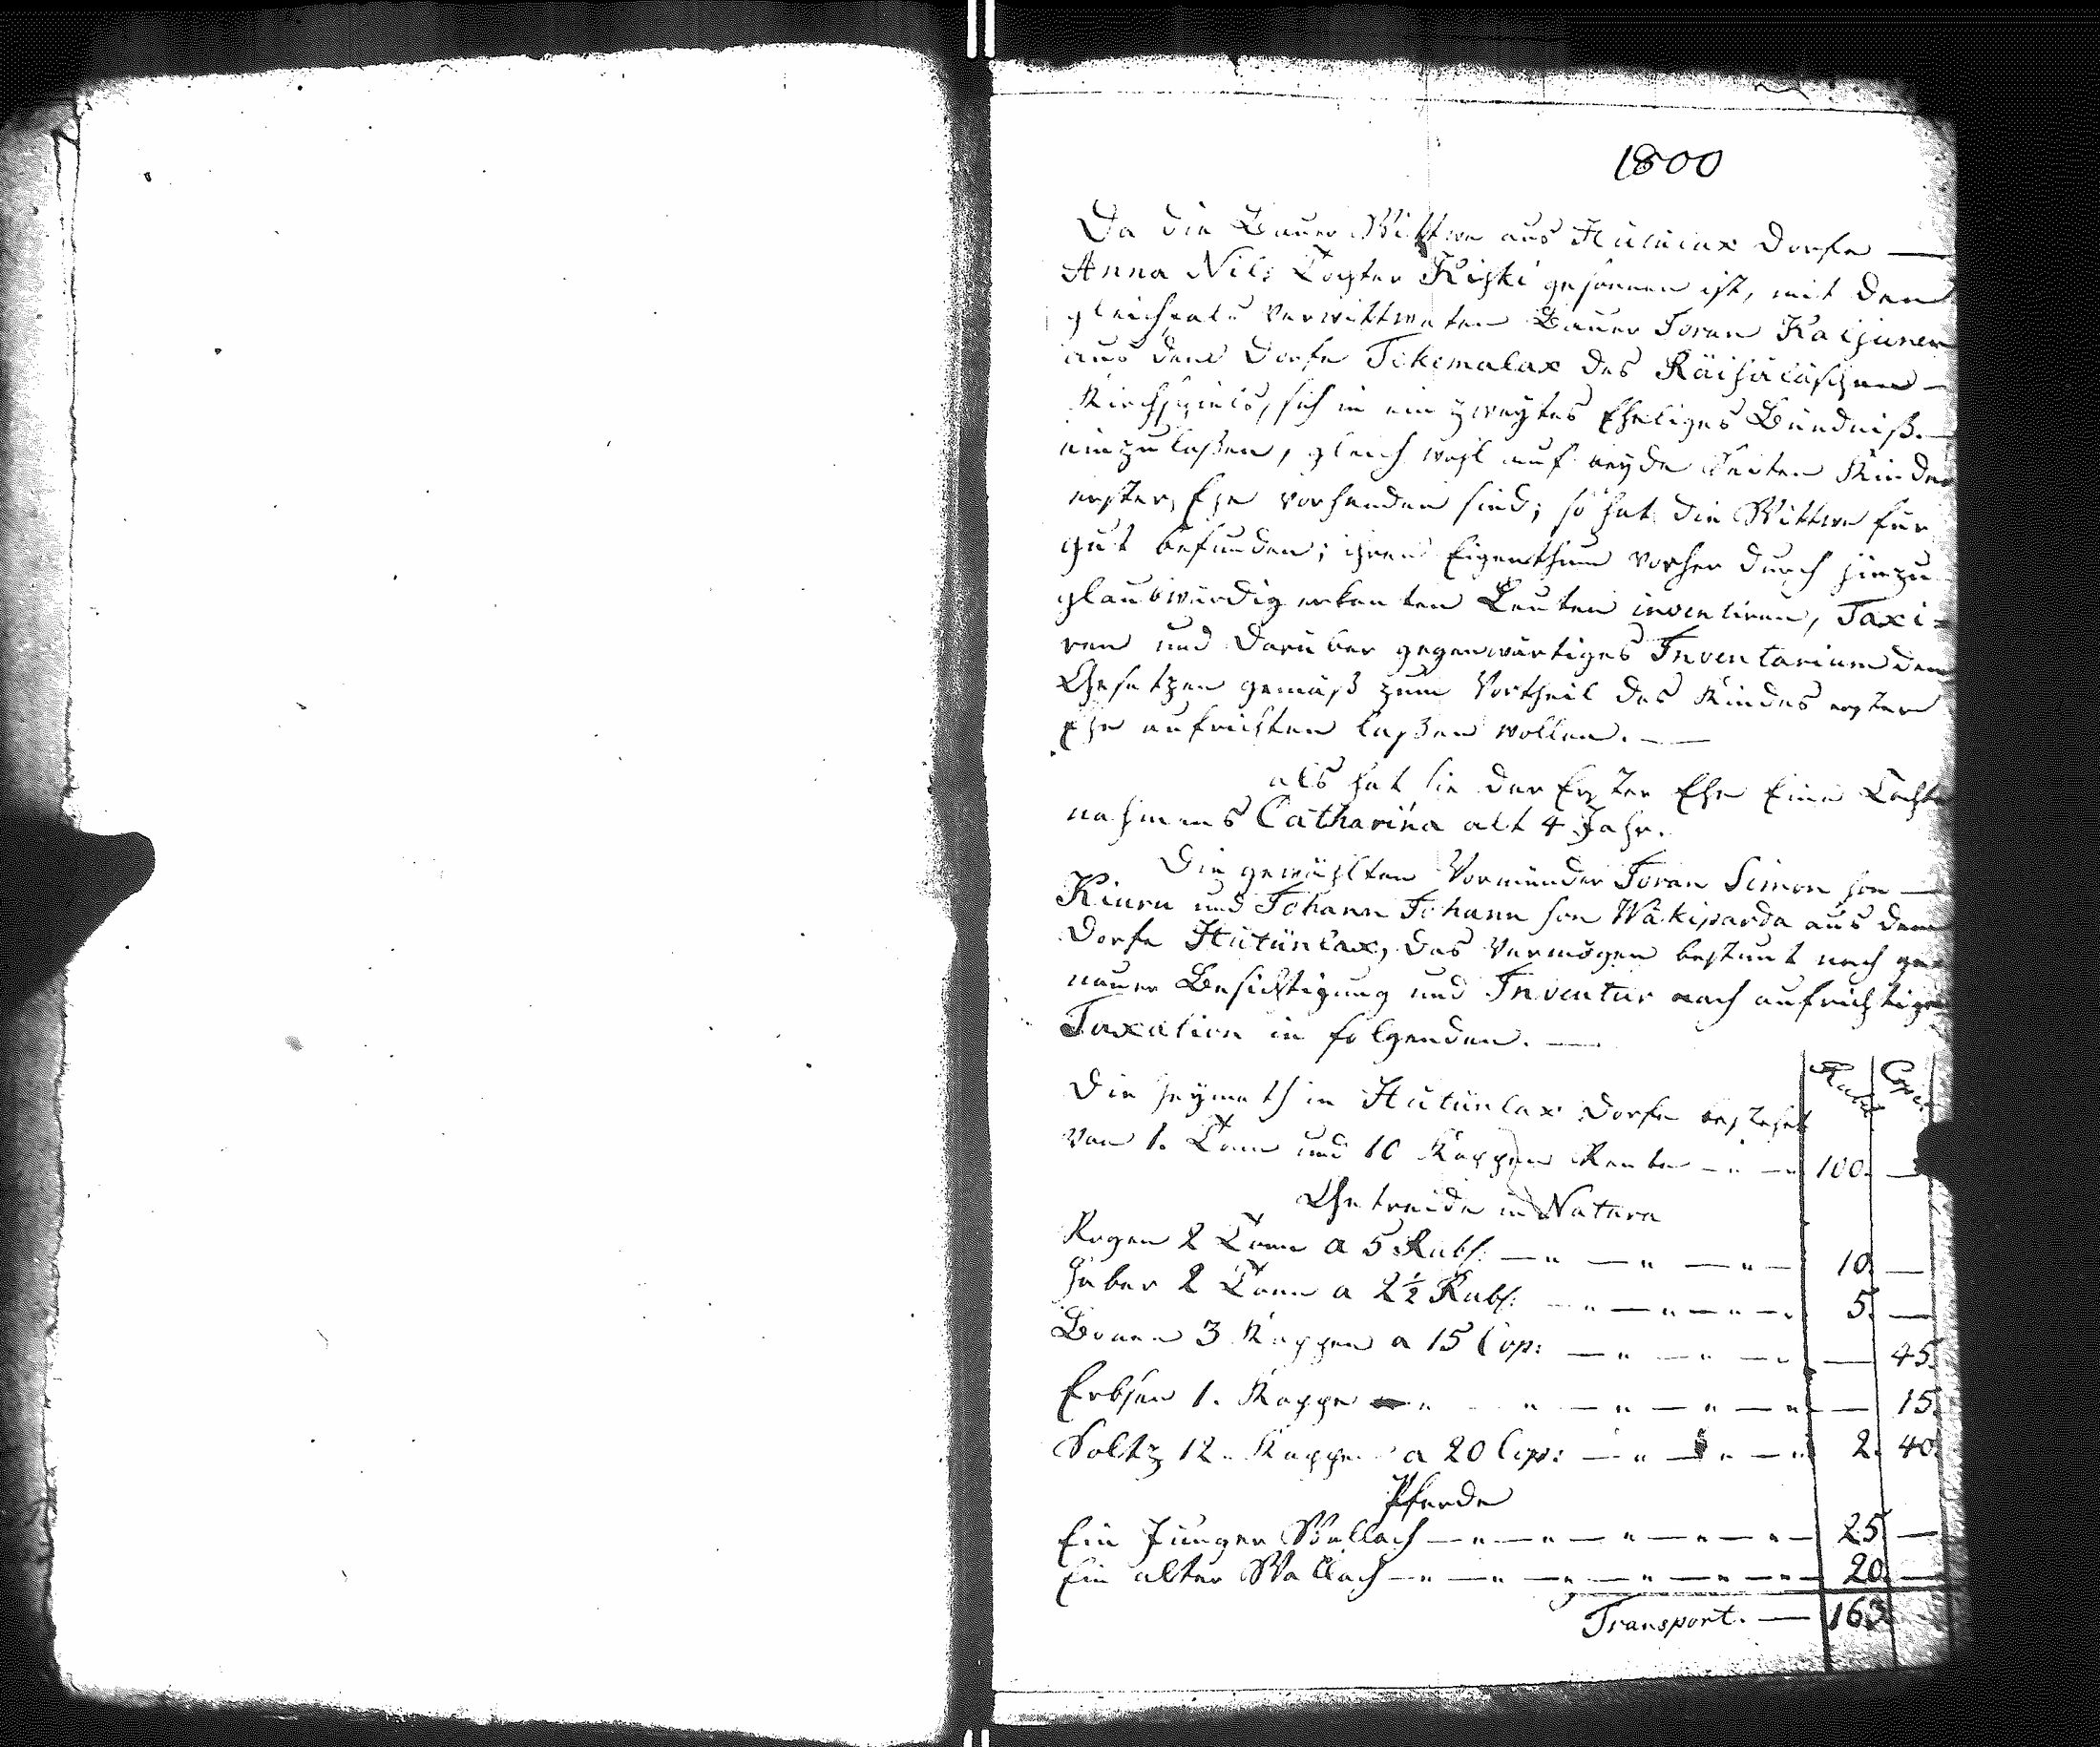 1800
Da die Bauer Wittwe aus Hütünlax Dorfe —
Anna Nils Tochter Kiski gesonnen ist, mit den
gleichfals verwittweten Bauer Joran Kaijunen
aus dem Dorfe Tekemalax des Räisäläschen —
Kirchspiels, sich in ein zweytes Eheliges Bündniß —
einzulaßen, gleich wohl auf beyde Seiten Kinder
erster Ehe vorhanden sind; so hat die Wittwe für
gut befunden; ihren Eigenthum vorher durch hiezu
glaubwürdig erkanten Leuten inventiren, Taxi=
ren und darüber gegenwärtiges Inventarium den
Gesetzen gemäß zum Vortheil des Kindes erster
Ehe aufrichten laßen wollen. —
als hat sie der Erster Ehe Eine Tochter
nahmens Catharina alt 4 Jahr.
Die gewählten Vormünder Joran Simon son —
Kiuru und Johann Johann son Wäkiparda aus dem
Dorfe Hütünlax, das Vermögen bestunt nach ge=
nauer Besichtigung und Inventur nach aufrichtigen
Taxation in folgenden. —
Rubel Cope
Die heymath in Hütünlax Dorfe bestehet
von 1. Tonn und 10 Kappen Rente — " — 100. —
Getreide in Natura
Rogen 2 Tonn a 5 Rubl: — " — " — " — 10. —
Haber 2 Tonn a 2½ Rubl: — " — " — " — 5. —
Bonen 3 Kappen a 15 Cop: — " — " — " — 45.
Erbsen 1. Kappe — " — " — " — " — " — 15.
Saltz 12. Kappen a 20 Cop: — " — " — " 2. 40.
Pferde
Ein Junger Wallach — " — " — " — " — " — 25 —
Ein alter Wallach — " — " — " — " — " — 20. —
Transport. — 163